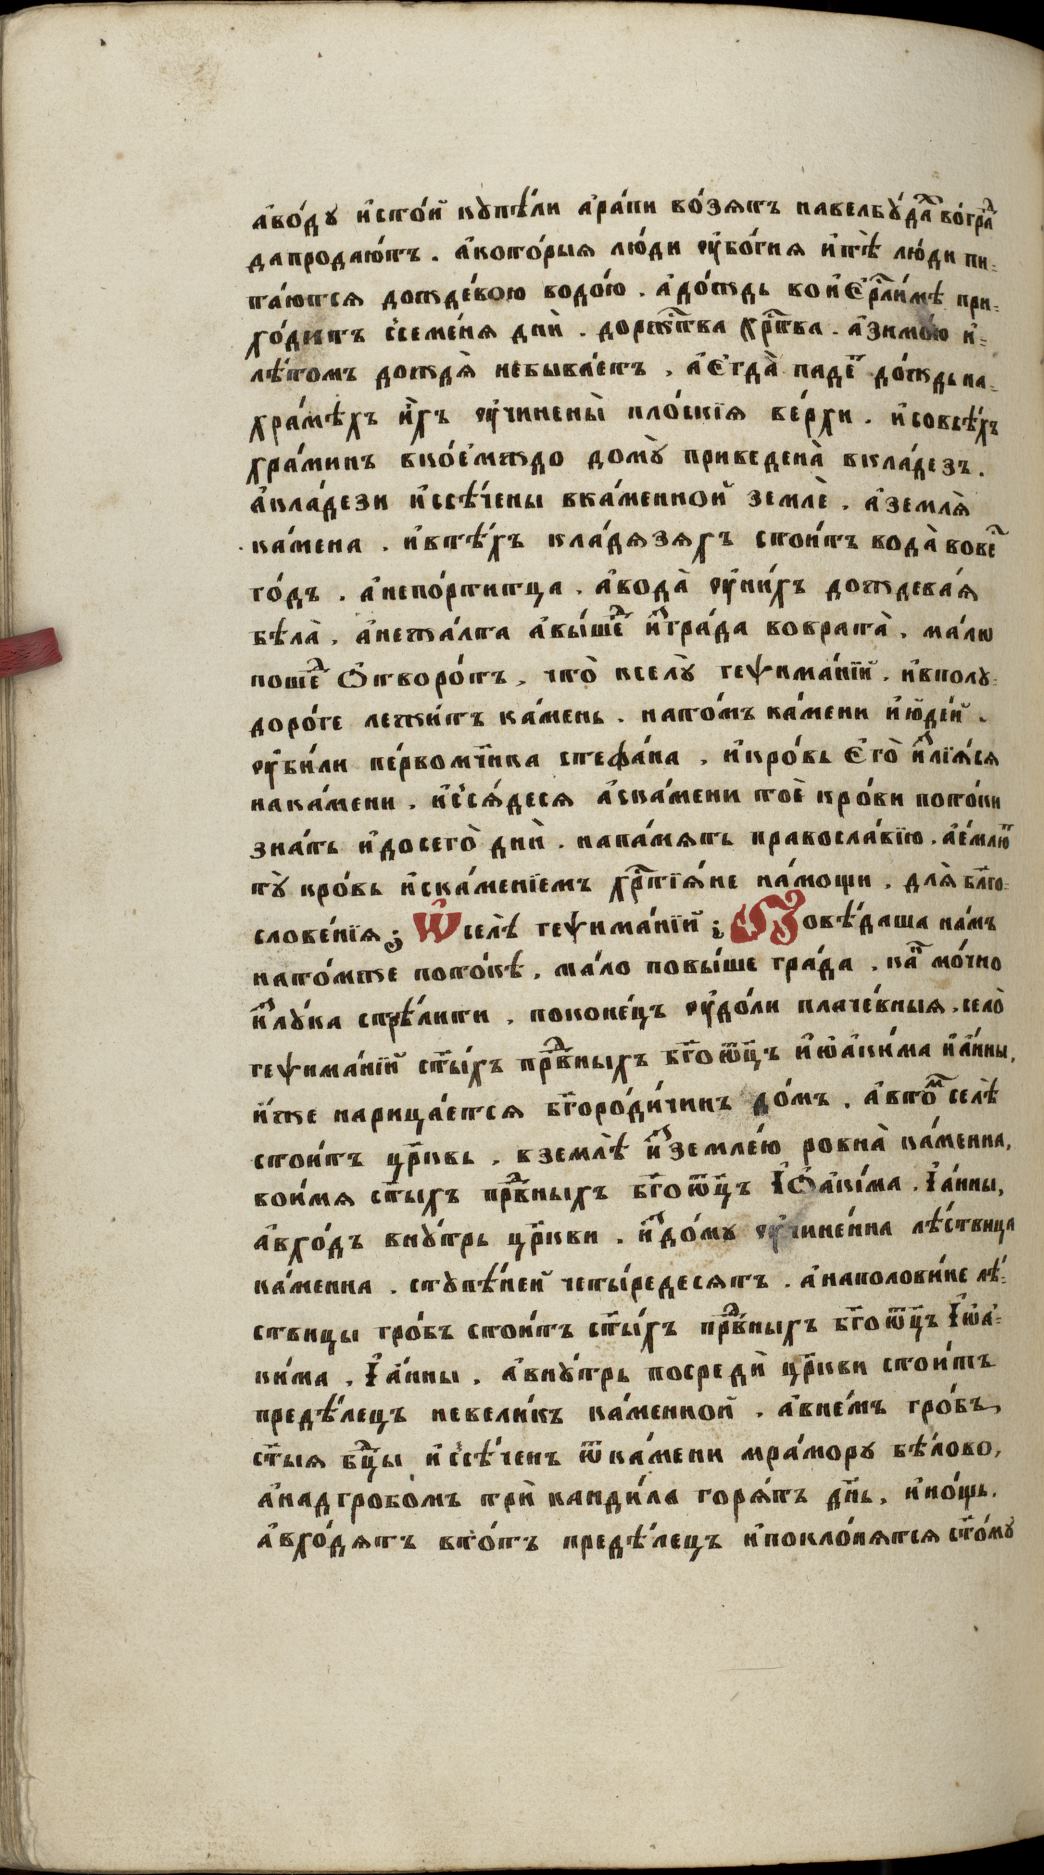 а҆во́дꙋ и҆сто́й кꙋпѣ́ли а҆ра́пи во́зѧтъ навелбꙋ́дⷶ во́грⷶ
да продаю́тъ . а҆кото́рыѧ лю́ди ᲂу҆бо́гиѧ и҆тѣ̀ лю́ди пи-
та́ютсѧ дожде́вою водо́ю . а҆до́ждь во и҆єрⷭ҇ли́мѣ при-
хо́дитъ ссеме́нѧ днѝ . дорожⷭ҇тва хрⷭ҇тва . а҆зимо́ю и҆-
лѣ́томъ дождѧ̀ небыва́етъ , а҆є҆гда̀ падеⷮ до́ждь на-
хра́мѣхъ и҆́хъ ᲂу҆чинены̀ пло́скїѧ ве́рхи . и҆совсѣ́хъ
хра́минъ вко́емждо домꙋ̀ приведена̀ вкла́дезъ .
а҆кла́дези и҆сѣ́чены вка́менной землѐ . а҆землѧ̀
ка́мена . и҆втѣ́хъ кла́дѧзѧхъ стои́тъ вода̀ вовеⷭ҇
го́дъ . а҆непо́ртитца . а҆вода̀ ᲂу҆ни́хъ дождева́ѧ
бѣла̀ . а҆нежа́лта а҆вы́шеⷣ и҆ⷥгра́да воврата̀ , ма́лю
пошеⷣ ѿтворо́тъ , что̀ кселꙋ̀ геѱима́нїй . и҆вполꙋ-
доро́ге лежи́тъ ка́мень . нато́мъ ка́мени и҆ю҆де́й .
ᲂу҆би́ли пе́рвомч҃ика стефа́на , и҆кро́вь є҆го̀ и҆ⷥлїѧ́сѧ
нака́мени . и҆ссѧ́десѧ а҆ска́мени тоѐ кро́ви пото́ки
зна́ть и҆досего̀ днѝ . напа́мѧть православїю . а҆е́млюⷮ
тꙋ̀ кро́вь и҆ска́менїемъ хрⷭ҇тїѧ́не на́мощи . длѧ̀ бл҃го-
слове́нїѧ ; Ѡ҆селѣ̀ геѱима́нїй ; Повѣ́даша на́мъ
нато́мже пото́кѣ , ма́ло повы́ше гра́да . каⷦ мо́чно
и҆ⷥлꙋ́ка стрѣ́лити . поконе́цъ ᲂу҆до́ли плаче́вныѧ . село̀
геѱима́нїй ст҃ы́хъ прⷣвныхъ бг҃оѿц҃ъ и҆ю҆а҆ки́ма и҆а҆́нны ,
и҆́же нарица́етсѧ бг҃оро́дичинъ до́мъ . а҆втоⷨ селѣ̀
стои́тъ цр҃ковь . вземлѣ̀ и҆ⷥземле́ю ровна̀ ка́менна ,
вои́мѧ ст҃ыхъ прⷣвныхъ бг҃оѿц҃ъ І҆ѡ҆аки́ма . І҆а́нны ,
а҆вхо́дъ внꙋ́трь цр҃кви . и҆ⷥдо́мꙋ ᲂу҆чине́нна лѣ́ствица
ка́менна . стꙋпѣ́ней четы́редесѧтъ . а҆наполови́не лѣ́-
ствицы гро́бъ стои́тъ ст҃ы́хъ прⷣвныхъ бг҃оѿц҃ъ І҆ѡ҆а-
ки́ма . І҆а́нны . а҆внꙋ́трь посредѝ цр҃кви стои́тъ
предѣ́лецъ невели́къ ка́менной . а҆вне́мъ гро́бъ ,
ст҃ыѧ бцⷣы и҆ссѣ́ченъ ѿка́мени мра́морꙋ бѣ́лово ,
а҆надгробомъ трѝ канди́ла горѧ́тъ дн҃ь . и҆но́щь .
а҆вхо́дѧтъ вто́тъ предѣ́лецъ и҆поклонѧ́тсѧ ст҃о́мꙋ